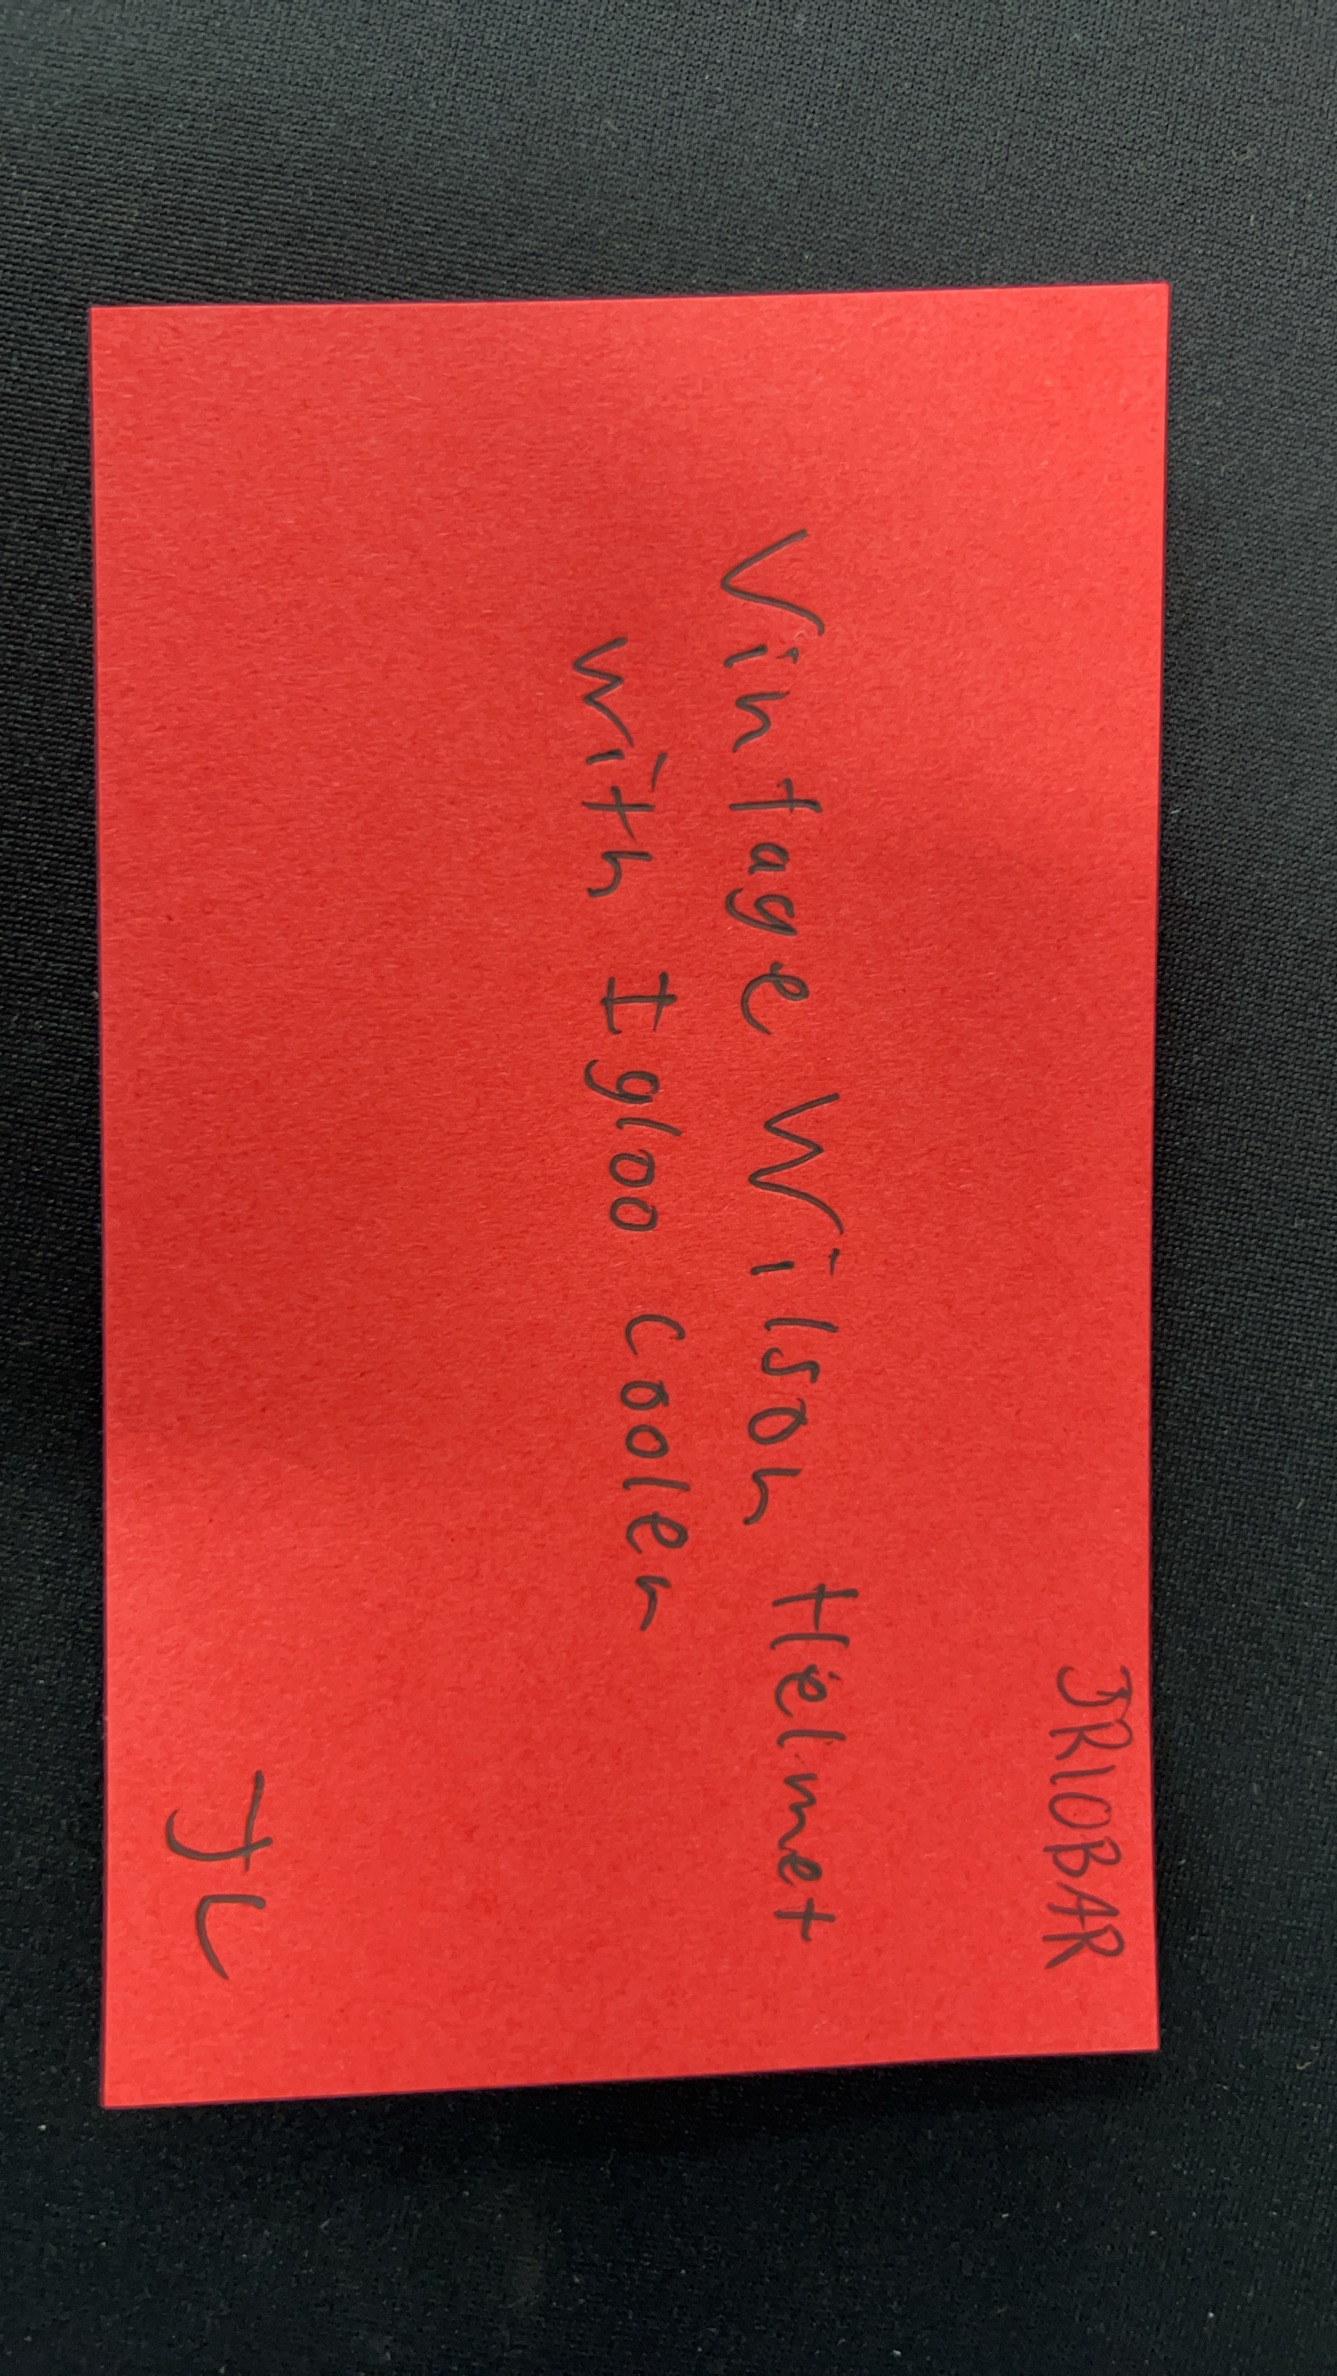 JRIOBAR
Vintage Wilson Helmet
with Igloo cooler
JL